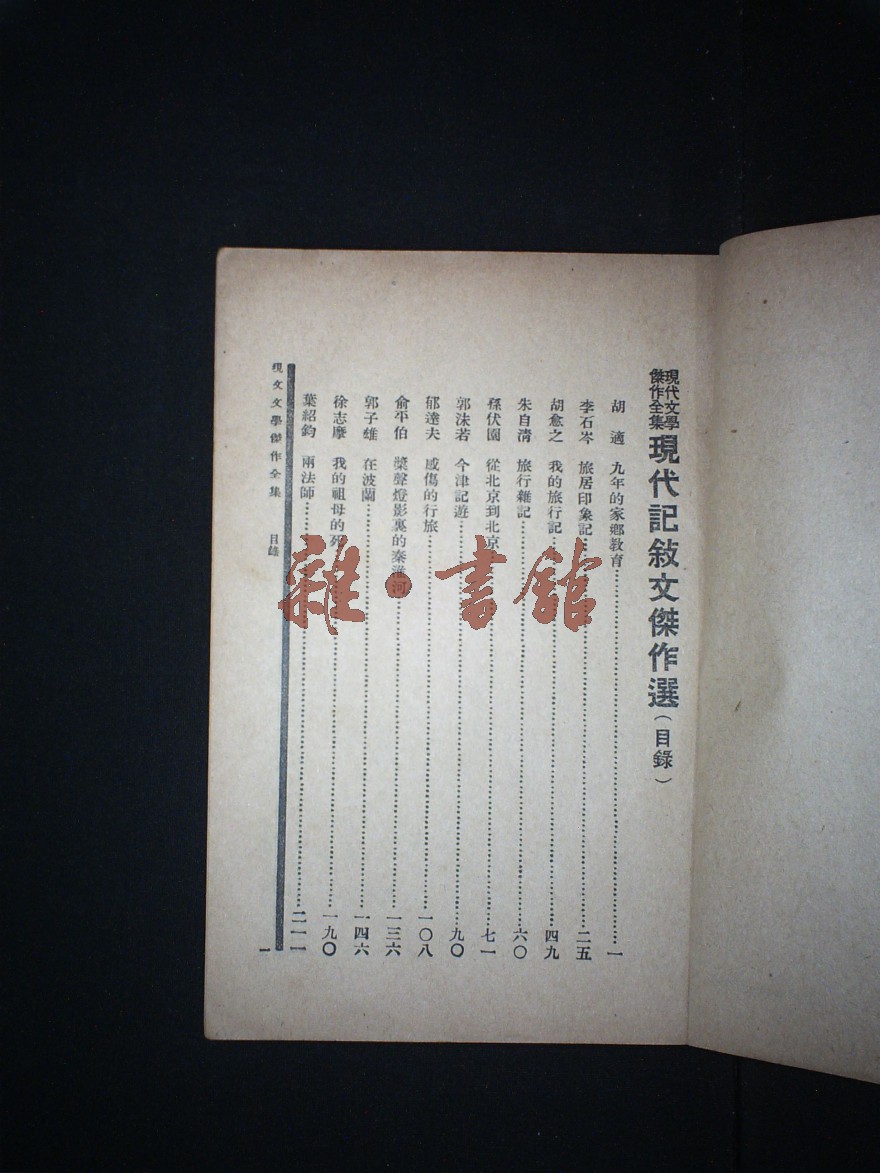 現代文學
傑作全集
現代記敍文傑作選(目錄)
胡適 九年的家鄉教育……一
李石岑 旅居印象記……二五
胡愈之 我的旅行記……四九
朱自清 旅行雜記……六〇
孫伏園 從北京到北京……七一
郭沫若 今津記遊……九〇
郁達夫 感傷的行旅……一〇八
俞平伯 槳聲燈影裏的秦淮河……一三六
郭子雄 在波蘭……一四六
徐志摩 我的祖母的死……一九〇
葉紹鈞 兩法師……二一一
現文文學傑作全集 目錄
一
雜·書館